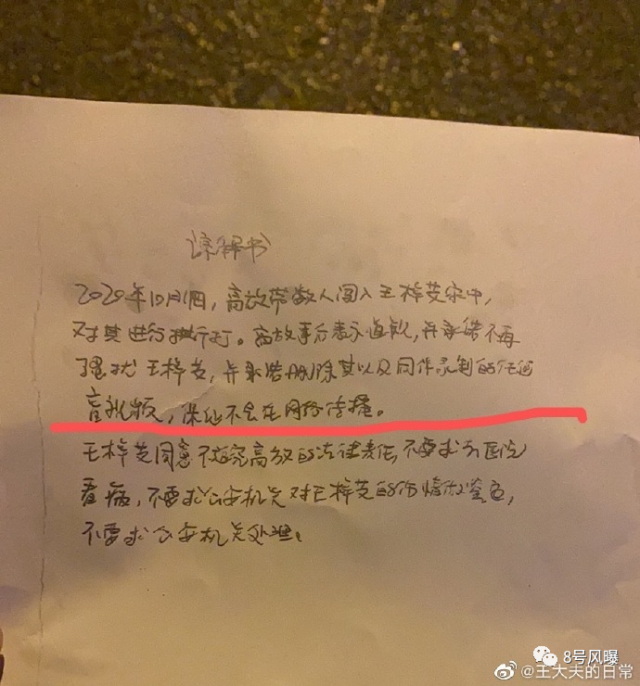 谅解书
2020年10月1日,高放带数人闯入王梓芠家中,
对其进行殴打。高放事后表示道歉,并承诺不再
骚扰王梓芠,并承诺删除其以及同伴录制的任何
音视频,保证不会在网络传播。
王梓芠同意不追究高放的法律责任,不要求到医院
看病,不要求公安机关对王梓芠的伤情做鉴定,
不要求公安机关处理。
8号风曝
@王大夫的日常